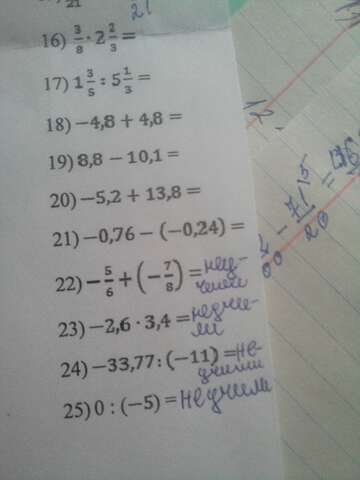 21
21
16) 3/8 · 2 2/3 =
17) 1 3/5 : 5 1/3 =
18) −4,8 + 4,8 =
19) 8,8 − 10,1 =
20) −5,2 + 13,8 =
21) −0,76 − (−0,24) =
22) − 5/6 + (− 7/8) = неучили
23) −2,6 · 3,4 = неучили
24) −33,77 : (−11) = неучили
25) 0 : (−5) = неучили
12